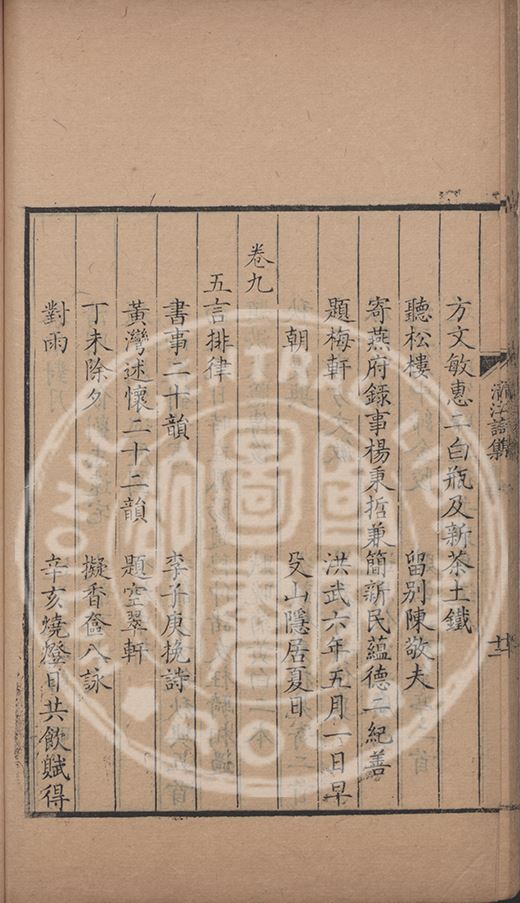 方文敏惠二白瓶及新茶土鐵
聽松樓　留別陳敬夫
寄燕府錄事楊秉哲兼簡新民蘊德二紀善
題梅軒　洪武六年五月一日早
朝　殳山隱居夏日
卷九
五言排律
書事二十韻　李子庚挽詩
黃灣述懷二十二韻　題空翠軒
丁未除夕　擬香奩八詠
對雨　辛亥燒燈日共飲賦得
清江詩集